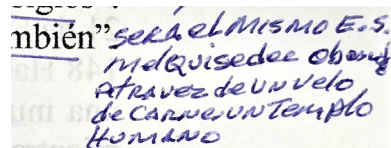 mbién" SERA EL MISMO E.S.
MELQUISEDEC
ATRAVEZ DE UN VELO
de CARNE UN TEMPLO
HUMANO